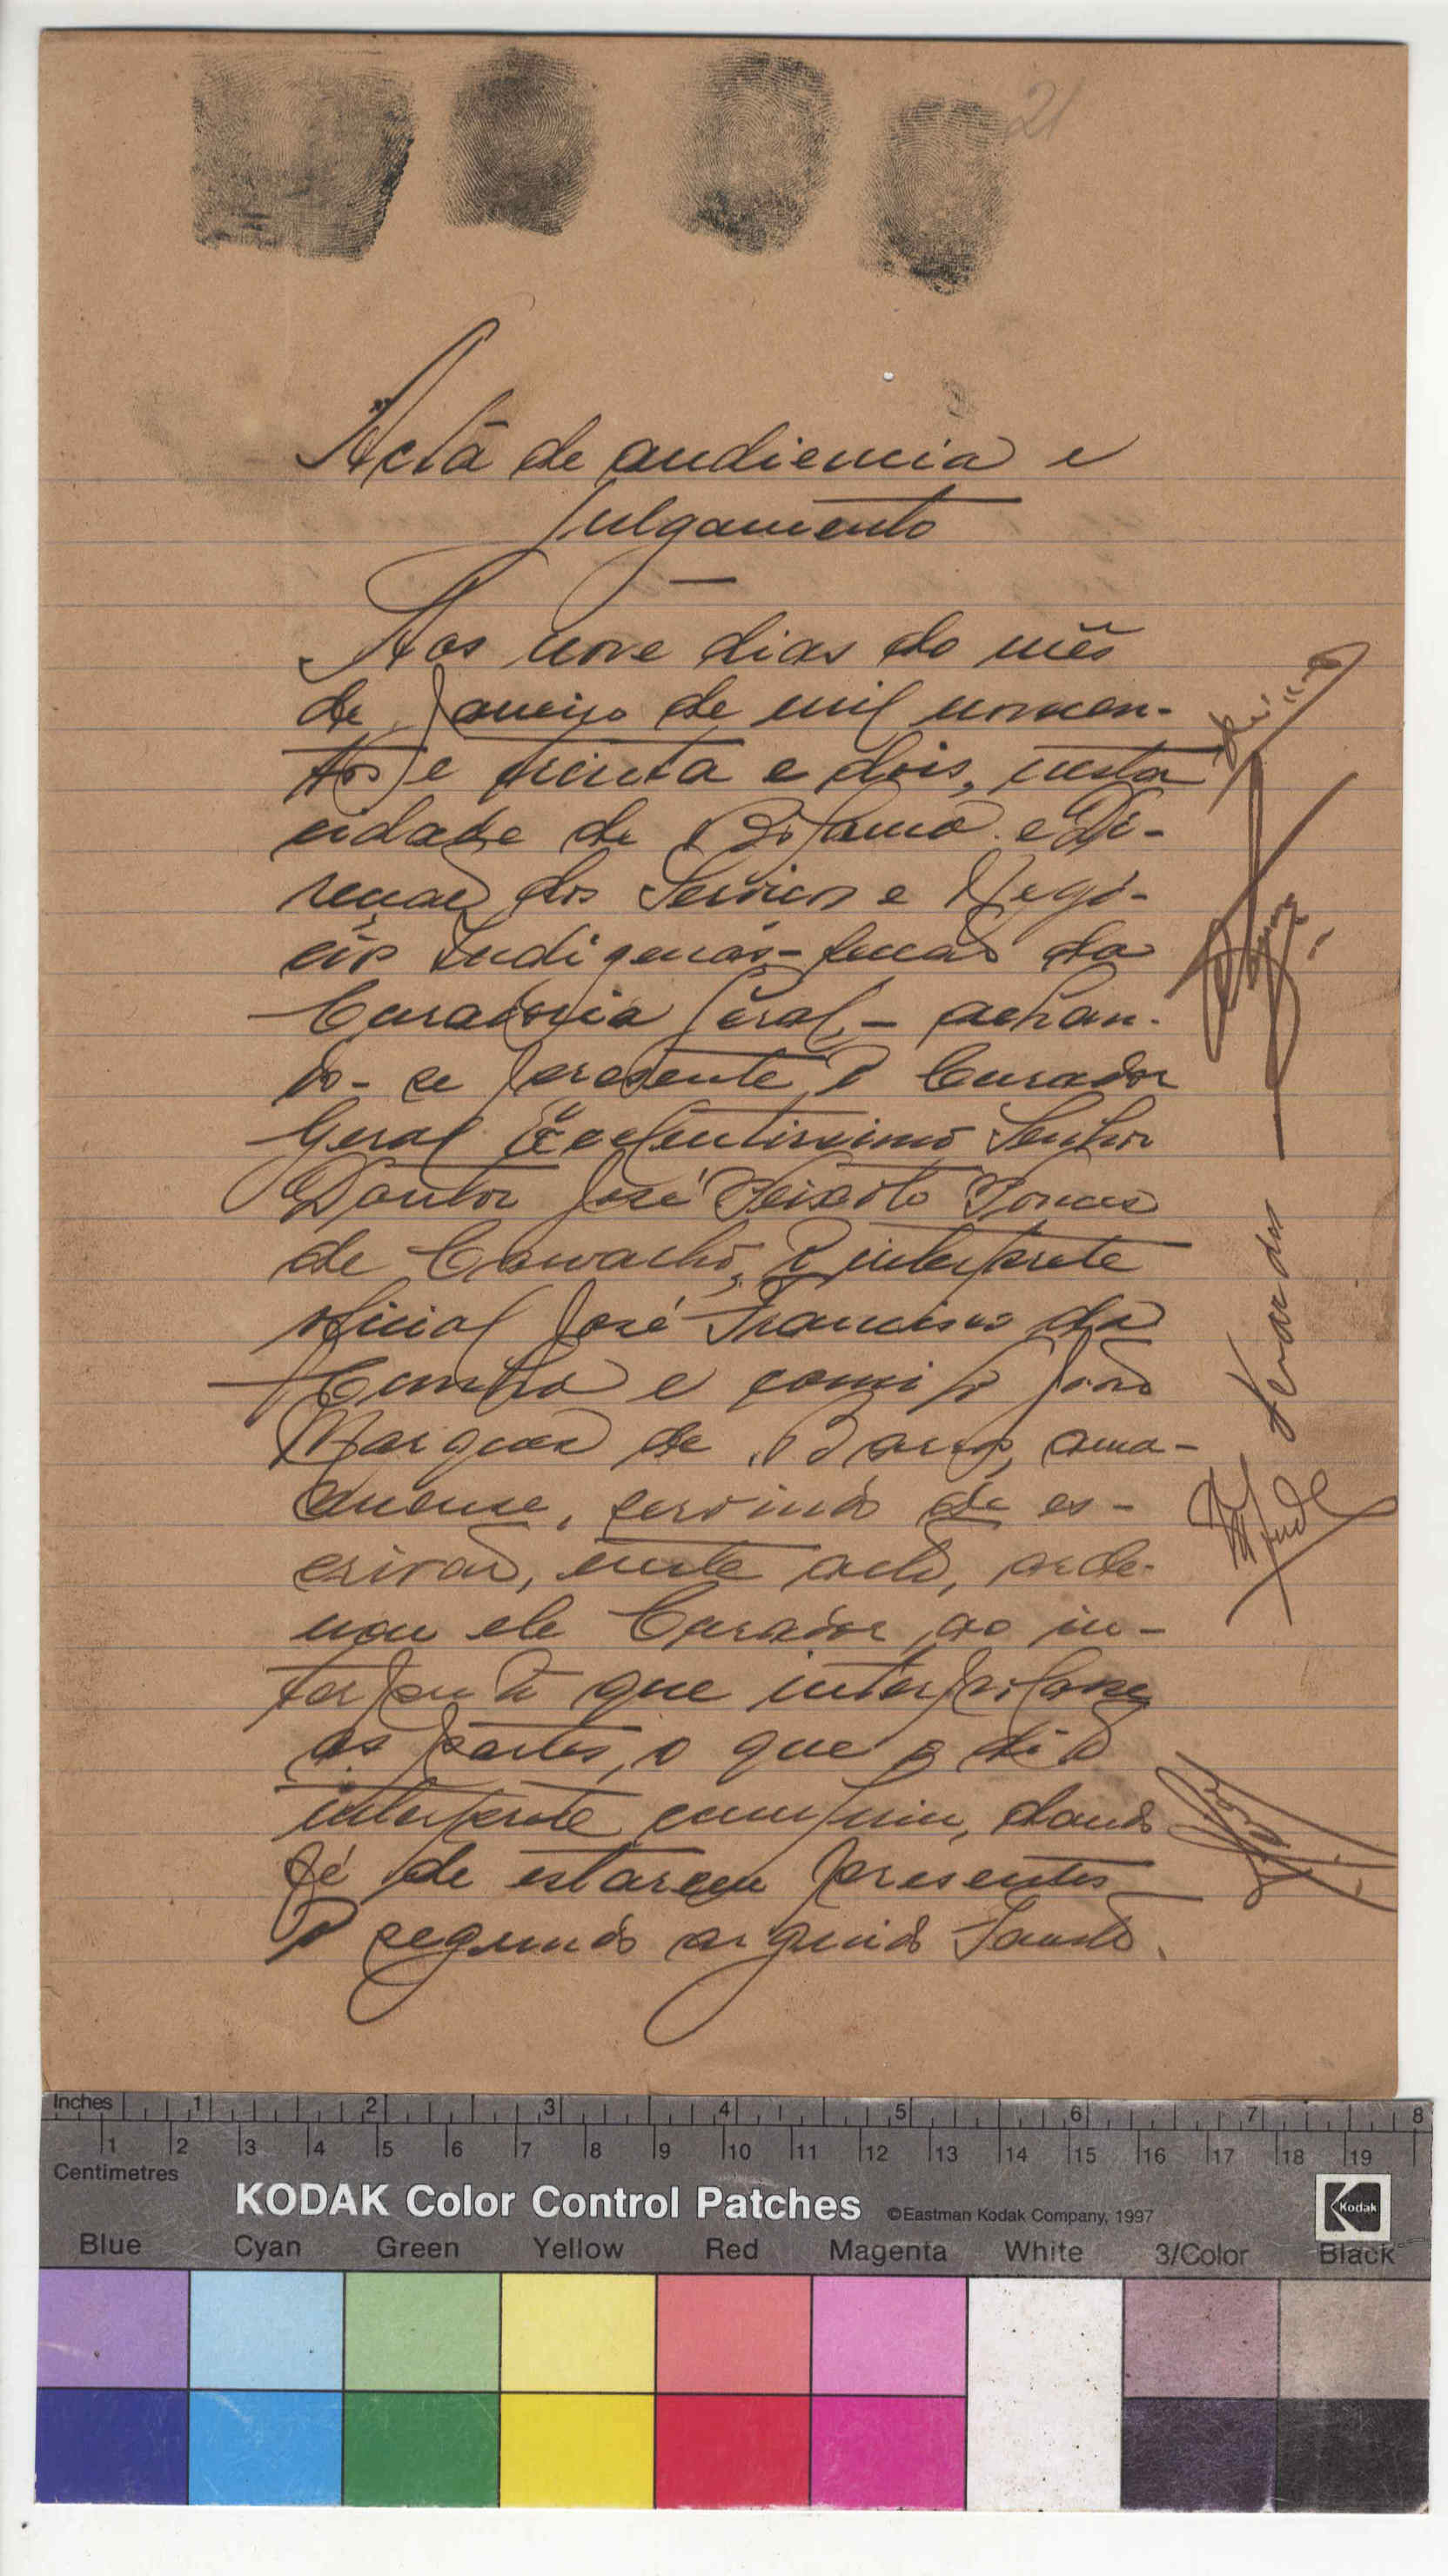 21
Acta de audiencia e
julgamento
Aos nove dias do mês
de Janeiro de mil novecen-
tos e trinta e dois, nesta
cidade de Bolama e Di-
recção dos Serviços e Negó-
cios Indigenas - secção da
Curadoria Geral, - achan-
do-se presente o Curador
Geral Excelentissimo Senhor
Doutor José Peixoto Ponces
de Carvalho, o interprete
oficial José Francisco da
Cunha e comigo João
Marques de Barros, ama-
nuense, servindo de es-
crivão, neste acto, orde-
nou ele Curador, ao in-
terprete que interpelasse
as partes, o que o dito
interprete cumpriu, dando
fé de estarem presentes
o segundo arguido
Inches 1 2 3 4 5 6 7 8
1 2 3 4 5 6 7 8 9 10 11 12 13 14 15 16 17 18 19
Centimetres
KODAK Color Control Patches ©Eastman Kodak Company, 1997 Kodak
Blue Cyan Green Yellow Red Magenta White 3/Color Black